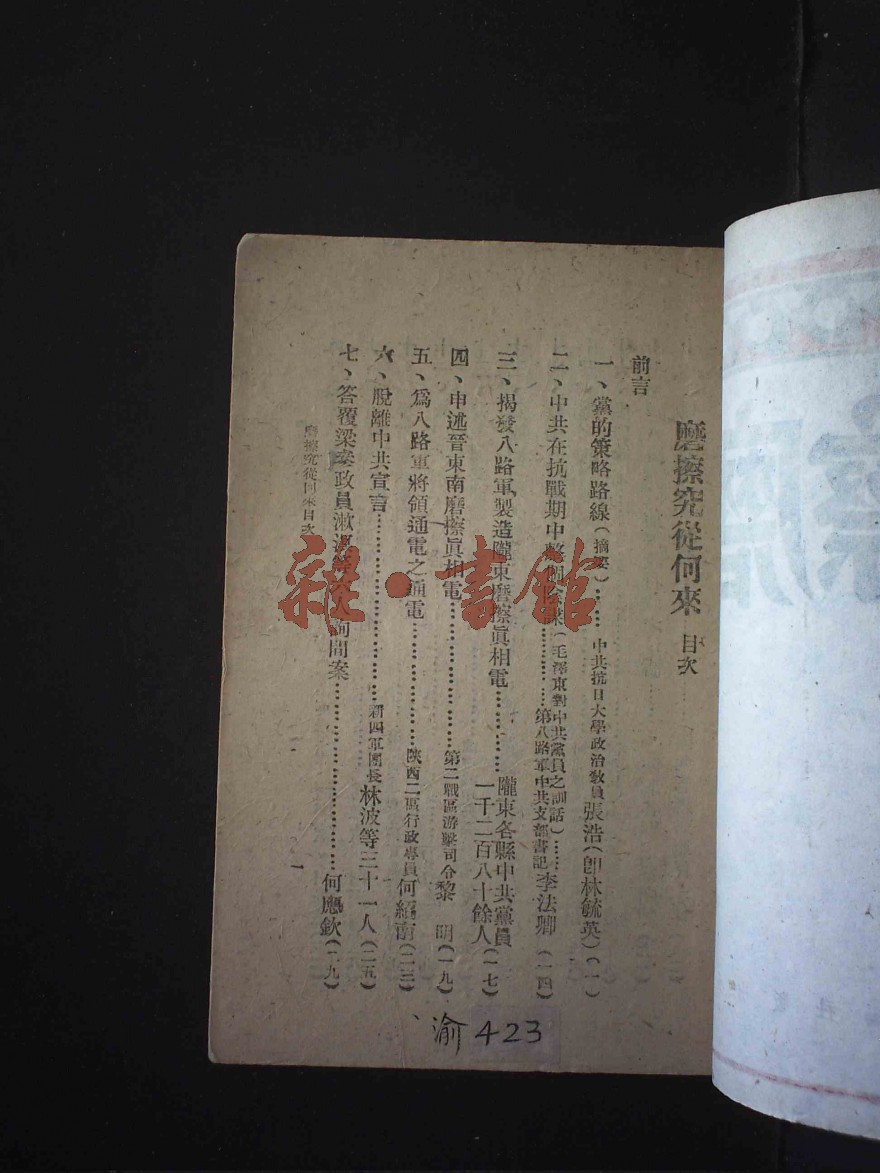 磨擦究從何來 目次
前言
一、黨的策略路線(摘要)…… 中共抗日大學政治教員張浩(即林毓英)(一)
二、中共在抗戰期中整個陰謀(毛澤東對中共黨員之訓話)……第八路軍中共支部書記李法卿(一四)
三、揭發八路軍製造隴東磨擦眞相電……隴東各縣中共黨員一千二百八十餘人(一七)
四、申述晉東南磨擦眞相電……第二戰區游擊司令黎 明(一九)
五、爲八路軍將領通電之通電……陝西二區行政專員何紹南(二三)
六、脫離中共宣言……新四軍團長林波等三十一人(二五)
七、答覆梁參政員漱溟等 人詢問案……何應欽(二九)
磨擦究從何來目次
一
渝423
雜·書館